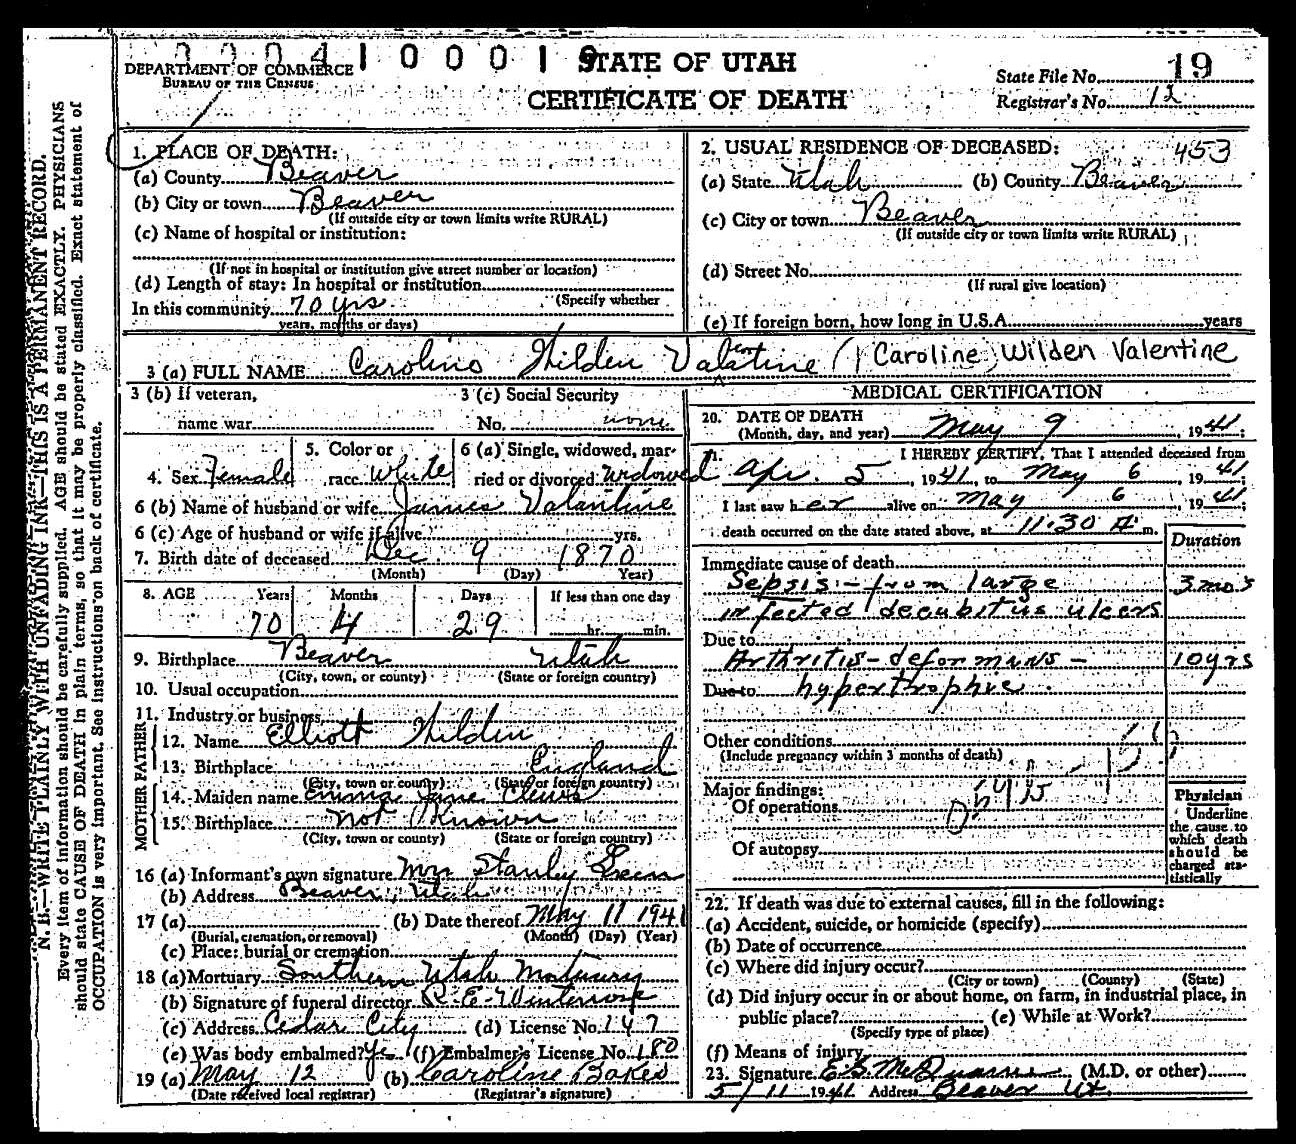 0004100019 STATE OF UTAH
DEPARTMENT OF COMMERCE
BUREAU OF THE CENSUS
CERTIFICATE OF DEATH
State File No. 19
Registrar's No. 12
N. B.—WRITE PLAINLY WITH UNFADING INK—THIS IS A PERMANENT RECORD.
Every item of information should be carefully supplied. AGE should be stated EXACTLY. PHYSICIANS
should state CAUSE OF DEATH in plain terms, so that it may be properly classified. Exact statement of
OCCUPATION is very important. See instructions on back of certificate.
1. PLACE OF DEATH:
(a) County Beaver
(b) City or town Beaver
(If outside city or town limits write RURAL)
(c) Name of hospital or institution:
(If not in hospital or institution give street number or location)
(d) Length of stay: In hospital or institution
(Specify whether
In this community 70 yrs
years, months or days)
2. USUAL RESIDENCE OF DECEASED: 453
(a) State Utah (b) County Beaver
(c) City or town Beaver
(If outside city or town limits write RURAL)
(d) Street No.
(If rural give location)
(e) If foreign born, how long in U.S.A. years
3 (a) FULL NAME Wilden (Caroline Wilden Valentine
3 (b) If veteran,
name war
3 (c) Social Security
No. none
4. Sex Female
5. Color or
race White
6 (a) Single, widowed, mar-
ried or divorced widowed
6 (b) Name of husband or wife James Valantine
6 (c) Age of husband or wife if alive yrs.
7. Birth date of deceased Dec. 9 1870
(Month) (Day) Year)
8. AGE Years Months Days If less than one day
70 4 29 hr. min.
9. Birthplace Beaver Utah
(City, town, or county) (State or foreign country)
10. Usual occupation
11. Industry or business
FATHER
12. Name Elliott Wilden
13. Birthplace England
(City, town or county) (State or foreign country)
MOTHER
14. Maiden name Emma Jane Clews
15. Birthplace not Known
(City, town or county) (State or foreign country)
16 (a) Informant's own signature Mrs Stanley Green
(b) Address Beaver, Utah
17 (a) (b) Date thereof May 11 1941
(Burial, cremation, or removal) (Month) (Day) (Year)
(c) Place: burial or cremation
18 (a) Mortuary Southern Utah Mortuary
(b) Signature of funeral director R. E. Winterrose
(c) Address Cedar City (d) License No. 147
(e) Was body embalmed? yes (f) Embalmer's License No. 180
19 (a) May 12 (b) Caroline Baker
(Date received local registrar) (Registrar's signature)
MEDICAL CERTIFICATION
20. DATE OF DEATH
(Month, day, and year) May 9, 1941;
21. I HEREBY CERTIFY, That I attended deceased from
Apr. 5, 1941, to May 6, 1941
I last saw her alive on May 6, 1941
death occurred on the date stated above, at 11:30 A. m.
Duration
Immediate cause of death
Sepsis – from large 3 mo's
infected decubitus ulcers
Due to
Arthritis – deformans – 10 yrs
Due to hypertrophic
Other conditions
(Include pregnancy within 3 months of death)
Major findings:
Of operations
Of autopsy
Physician
Underline
the cause to
which death
should be
charged sta-
tistically
22. If death was due to external causes, fill in the following:
(a) Accident, suicide, or homicide (specify)
(b) Date of occurrence
(c) Where did injury occur?
(City or town) (County) (State)
(d) Did injury occur in or about home, on farm, in industrial place, in
public place? (e) While at Work?
(Specify type of place)
(f) Means of injury
23. Signature (M.D. or other)
5/11 1941 Address Beaver Ut.